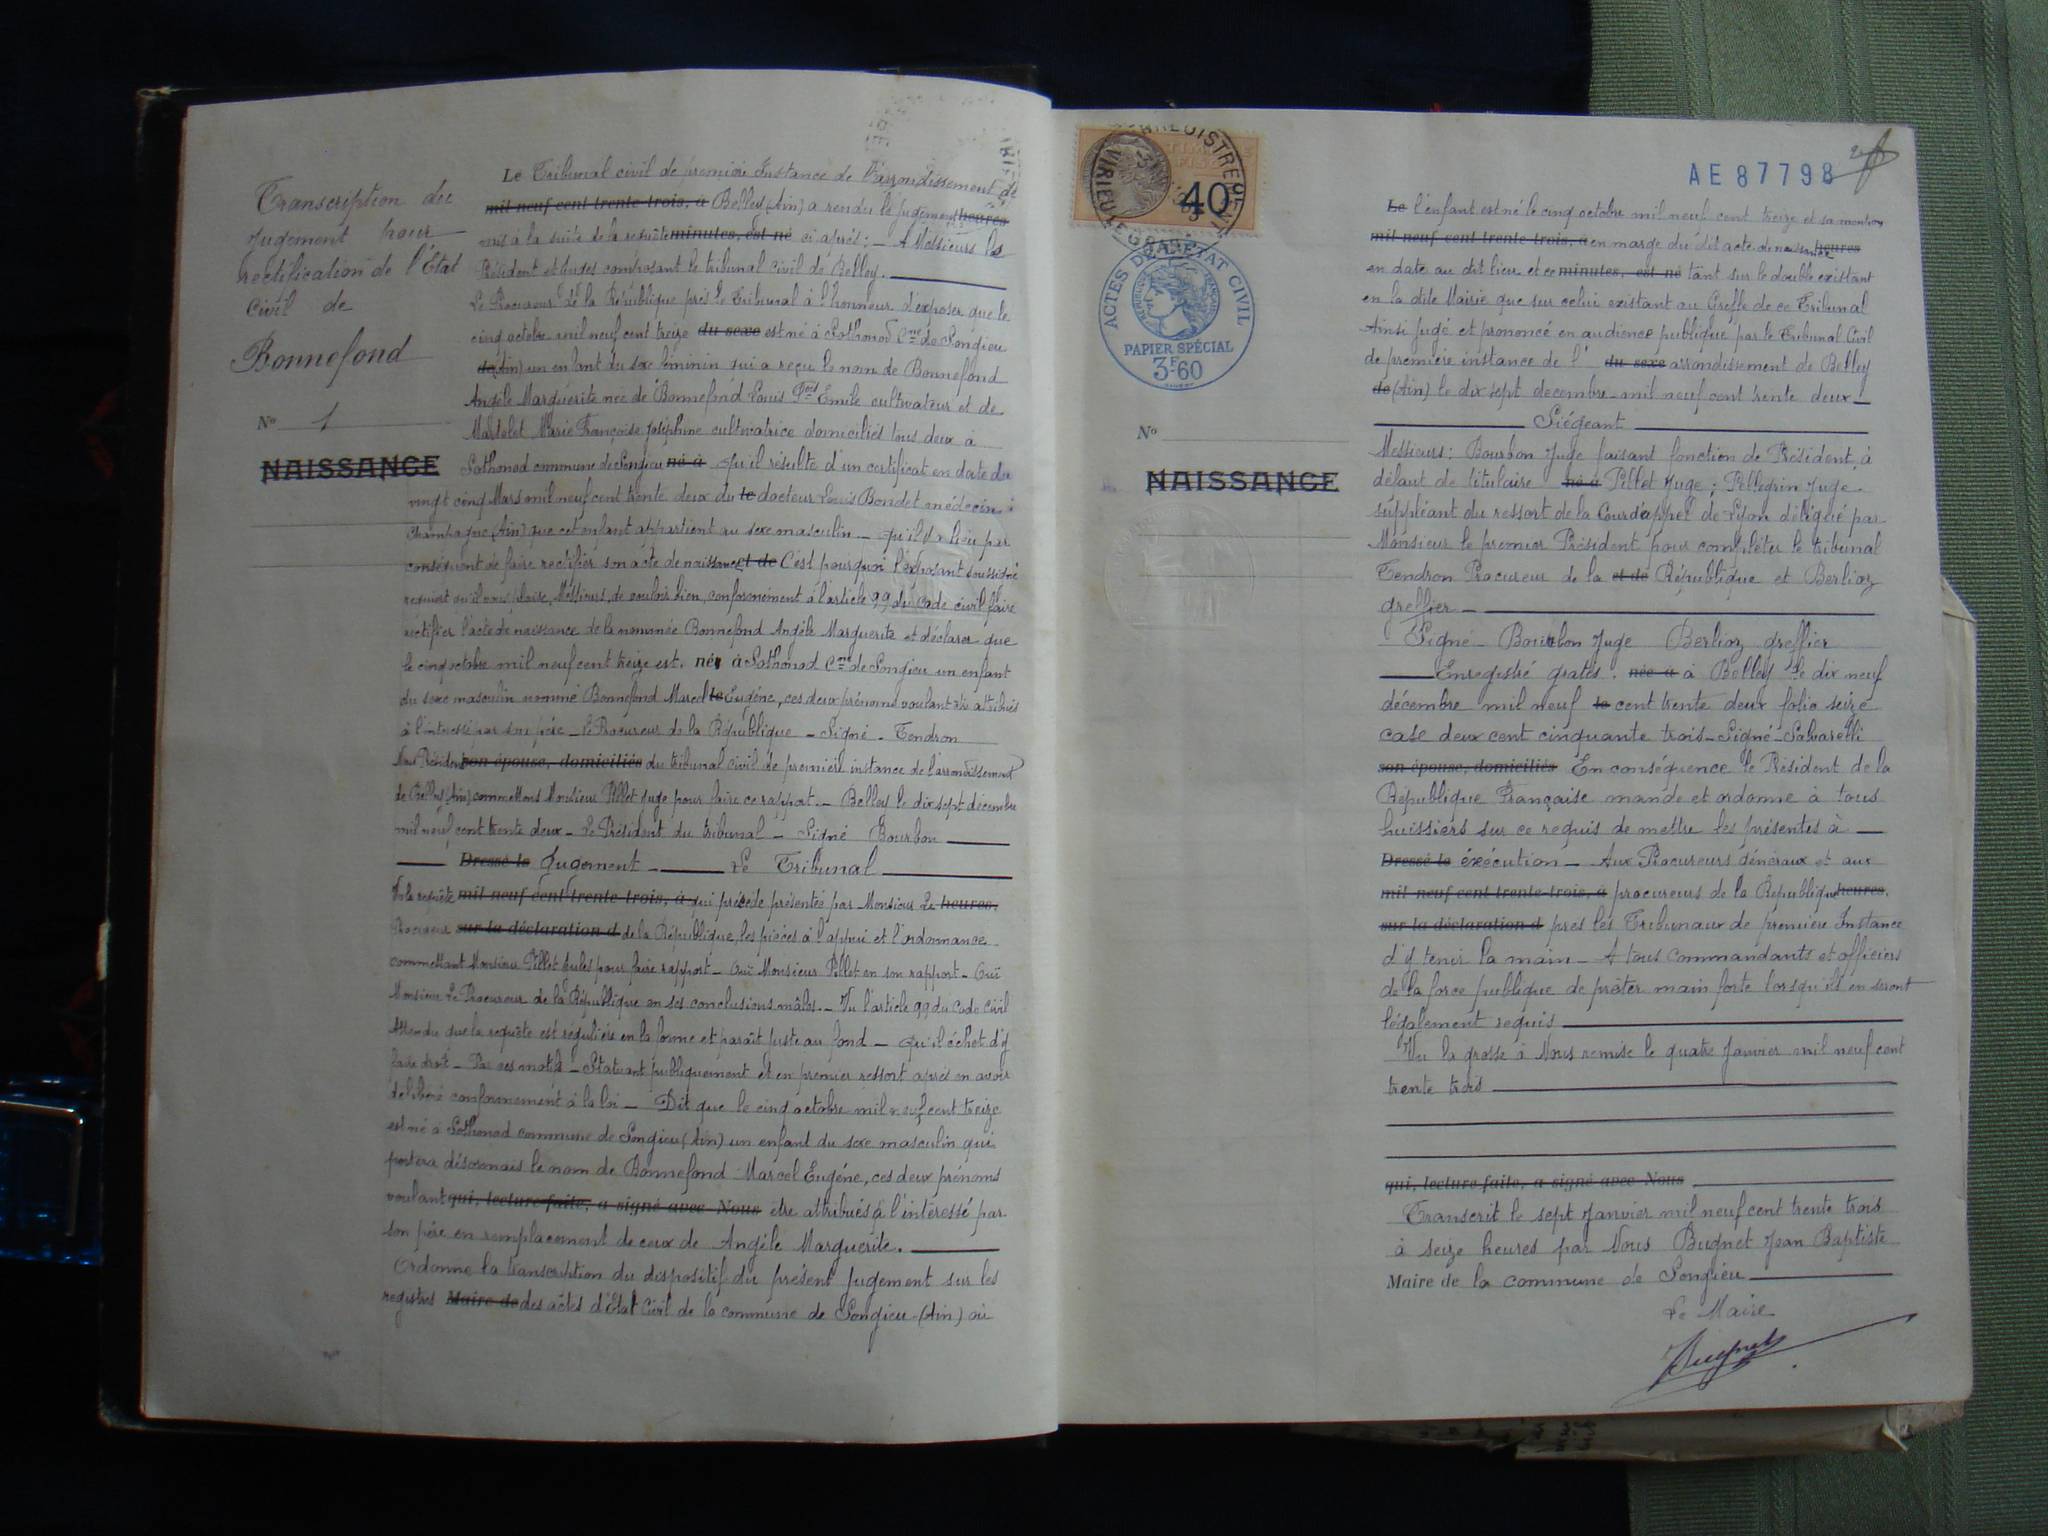 Transcription du
Jugement pour
rectification de l'État
Civil de
Bonnefond
No 1
NAISSANCE
Le Tribunal civil de première Instance de l'arrondissement de
mil neuf cent trente-trois, à Belley (Ain) a rendu le jugement heures
mis à la suite de la requête minutes, est né ci après: — A Messieurs les
Président et Juges composant le tribunal civil de Belley.
Le Procureur de la République près le Tribunal à l'honneur d'exposer que le
cinq octobre mil neuf cent treize du sexe est né à Sothonod Cne de Songieu
de (Ain) un enfant du sexe féminin qui a reçu le nom de Bonnefond
Angèle Marguerite née de Bonnefond Louis Emile cultivateur et de
Martelet Marie Françoise Joséphine cultivatrice domiciliés tous deux à
Sothonod commune de Songieu né à qu'il résulte d'un certificat en date du
vingt cinq Mars mil neuf cent trente deux du le docteur Louis Bondet médecin à
Champagne (Ain) que cet enfant appartient au sexe masculin — qu'il y a lieu par
conséquent de faire rectifier son acte de naissance et de C'est pourquoi l'exposant soussigné
requiert qu'il vous plaise, Messieurs, de vouloir bien, conformément à l'article 99 du Code civil faire
rectifier l'acte de naissance de la nommée Bonnefond Angèle Marguerite et déclarer que
le cinq octobre mil neuf cent treize est né à Sothonod Cne de Songieu un enfant
du sexe masculin nommé Bonnefond Marcel le Eugène, ces deux prénoms voulant être attribués
à l'intéressé par son père — Le Procureur de la République — Signé — Tendron
Nous Président son épouse, domiciliés du tribunal civil de première instance de l'arrondissement
de Belley (Ain) commettons Monsieur Pellet Juge pour faire ce rapport. — Belley le dix sept décembre
mil neuf cent trente deux — Le Président du tribunal — Signé Bourbon
Dressé le Jugement — Le Tribunal
Vu la requête mil neuf cent trente-trois, à qui précède présentée par Monsieur Le heures,
Procureur sur la déclaration d de la République, les pièces à l'appui et l'ordonnance
commettant Monsieur Pellet Juge pour faire rapport — Ouï Monsieur Pellet en son rapport — Ouï
Monsieur Le Procureur de la République en ses conclusions — Vu l'article 99 du Code civil
Attendu que la requête est régulière en la forme et paraît juste au fond — qu'il échet d'y
faire droit — Par ces motifs — Statuant publiquement et en premier ressort après en avoir
délibéré conformément à la loi — Dit que le cinq octobre mil neuf cent treize
est né à Sothonod commune de Songieu (Ain) un enfant du sexe masculin qui
portera désormais le nom de Bonnefond Marcel Eugène, ces deux prénoms
voulant qui, lecture faite, a signé avec Nous etre attribués à l'intéressé par
son père en remplacement de ceux de Angèle Marguerite.
Ordonne la transcription du dispositif du présent jugement sur les
registres Maire de des actes d'Etat Civil de la commune de Songieu (Ain) où
40
ACTES DE L'ETAT CIVIL
PAPIER SPÉCIAL
3F60
AE 87798
No
NAISSANCE
Le l'enfant est né le cinq octobre mil neuf cent treize et sa mention
mil neuf cent trente-trois, à en marge du dit acte de naissance heures
en date au dit lieu et ce minutes, est né tant sur le double existant
en la dite Mairie que sur celui existant au Greffe de ce Tribunal
Ainsi jugé et prononcé en audience publique par le Tribunal Civil
de première instance de l' du sexe arrondissement de Belley
de (Ain) le dix sept decembre mil neuf cent trente deux
Siégeant
Messieurs: Bourbon Juge faisant fonction de Président, à
défaut de titulaire né à Pellet Juge; Pellegrin Juge
suppléant du ressort de la Cour d'appel de Lyon délégué par
Monsieur le premier Président pour compléter le tribunal
Tendron Procureur de la et de République et Berlioz
greffier —
Signé — Bourbon Juge Berlioz greffier
Enregistré gratis. née à à Belley le dix neuf
décembre mil neuf le cent trente deux folio seize
case deux cent cinquante trois — Signé — Salvarelli
son épouse, domiciliés En conséquence le Président de la
République Française mande et ordonne à tous
huissiers sur ce requis de mettre les présentes à
Dressé le exécution — Aux Procureurs Généraux et aux
mil neuf cent trente-trois, à procureurs de la République heures,
sur la déclaration d près les Tribunaux de première Instance
d'y tenir la main — A tous commandants et officiers
de la force publique de prêter main forte lorsqu'ils en seront
légalement requis
Vu la grosse à Nous remise le quatre Janvier mil neuf cent
trente trois
qui, lecture faite, a signé avec Nous
Transcrit le sept Janvier mil neuf cent trente trois
à seize heures par Nous Bugnet Jean Baptiste
Maire de la commune de Songieu
Le Maire
Bugnet